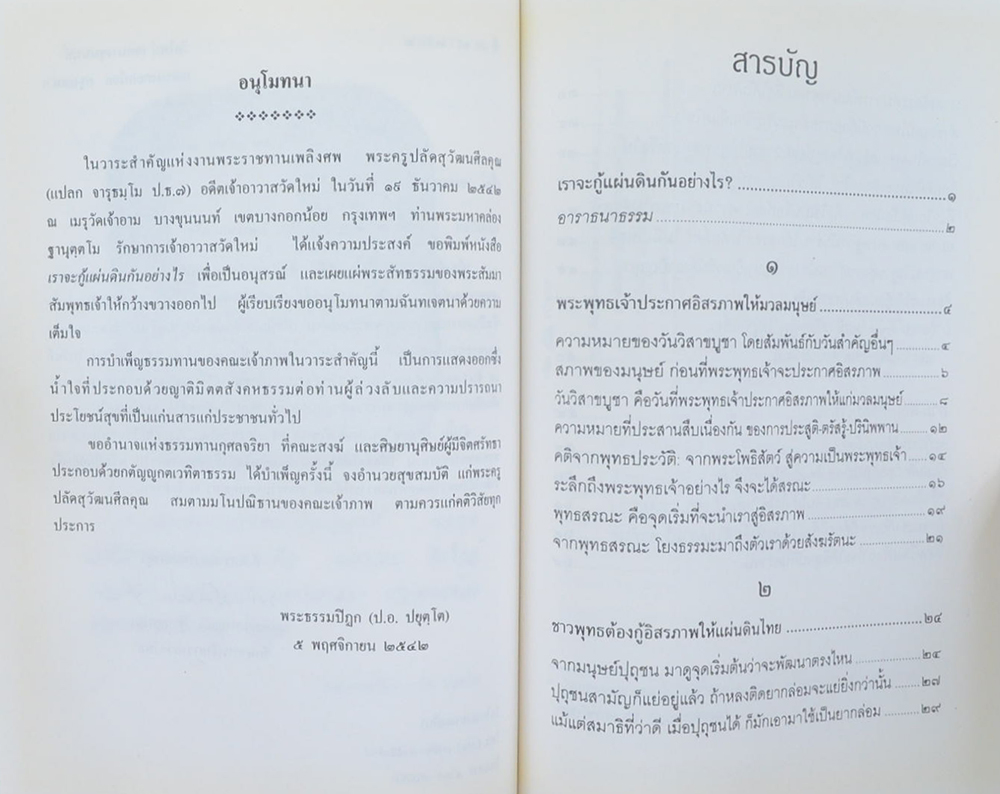 อนุโมทนา
ในวาระสำคัญแห่งงานพระราชทานเพลิงศพ พระครูปลัดสุวัฒนศีลคุณ
(แปลก จารุธมฺโม ป.ธ.๗) อดีตเจ้าอาวาสวัดใหม่ ในวันที่ ๑๙ ธันวาคม ๒๕๔๒
ณ เมรุวัดเจ้าอาม บางขุนนนท์ เขตบางกอกน้อย กรุงเทพฯ ท่านพระมหาคล่อง
ฐานุตฺตโม รักษาการเจ้าอาวาสวัดใหม่ ได้แจ้งความประสงค์ ขอพิมพ์หนังสือ
เราจะกู้แผ่นดินกันอย่างไร เพื่อเป็นอนุสรณ์ และเผยแผ่พระสัทธรรมของพระสัมมา
สัมพุทธเจ้าให้กว้างขวางออกไป ผู้เรียบเรียงขออนุโมทนาตามฉันทเจตนาด้วยความ
เต็มใจ
การบำเพ็ญธรรมทานของคณะเจ้าภาพในวาระสำคัญนี้ เป็นการแสดงออกซึ่ง
น้ำใจที่ประกอบด้วยญาติมิตตสังคหธรรมต่อท่านผู้ล่วงลับและความปรารถนา
ประโยชน์สุขที่เป็นแก่นสารแก่ประชาชนทั่วไป
ขออำนาจแห่งธรรมทานกุศลจริยา ที่คณะสงฆ์ และศิษยานุศิษย์ผู้มีจิตศรัทธา
ประกอบด้วยกตัญญูกตเวทิตาธรรม ได้บำเพ็ญครั้งนี้ จงอำนวยสุขสมบัติ แก่พระครู
ปลัดสุวัฒนศีลคุณ สมตามมโนปณิธานของคณะเจ้าภาพ ตามควรแก่คติวิสัยทุก
ประการ
พระธรรมปิฎก (ป.อ. ปยุตฺโต)
๕ พฤศจิกายน ๒๕๔๒
สารบัญ
เราจะกู้แผ่นดินกันอย่างไร? ๑
อาราธนาธรรม ๒
๑
พระพุทธเจ้าประกาศอิสรภาพให้มวลมนุษย์ ๔
ความหมายของวันวิสาขบูชา โดยสัมพันธ์กับวันสำคัญอื่นๆ ๔
สภาพของมนุษย์ ก่อนที่พระพุทธเจ้าจะประกาศอิสรภาพ ๖
วันวิสาขบูชา คือวันที่พระพุทธเจ้าประกาศอิสรภาพให้แก่มวลมนุษย์ ๘
ความหมายที่ประสานสืบเนื่องกัน ของการประสูติ-ตรัสรู้-ปรินิพพาน ๑๒
คติจากพุทธประวัติ: จากพระโพธิสัตว์ สู่ความเป็นพระพุทธเจ้า ๑๔
ระลึกถึงพระพุทธเจ้าอย่างไร จึงจะได้สรณะ ๑๖
พุทธสรณะ คือจุดเริ่มที่จะนำเราสู่อิสรภาพ ๑๙
จากพุทธสรณะ โยงธรรมะมาถึงตัวเราด้วยสังฆรัตนะ ๒๑
๒
ชาวพุทธต้องกู้อิสรภาพให้แผ่นดินไทย ๒๔
จากมนุษย์ปุถุชน มาดูจุดเริ่มต้นว่าจะพัฒนาตรงไหน ๒๔
ปุถุชนสามัญก็แย่อยู่แล้ว ถ้าหลงติดยากล่อมจะแย่ยิ่งกว่านั้น ๒๗
แม้แต่สมาธิที่ว่าดี เมื่อปุถุชนได้ ก็มักเอามาใช้เป็นยากล่อม ๒๙